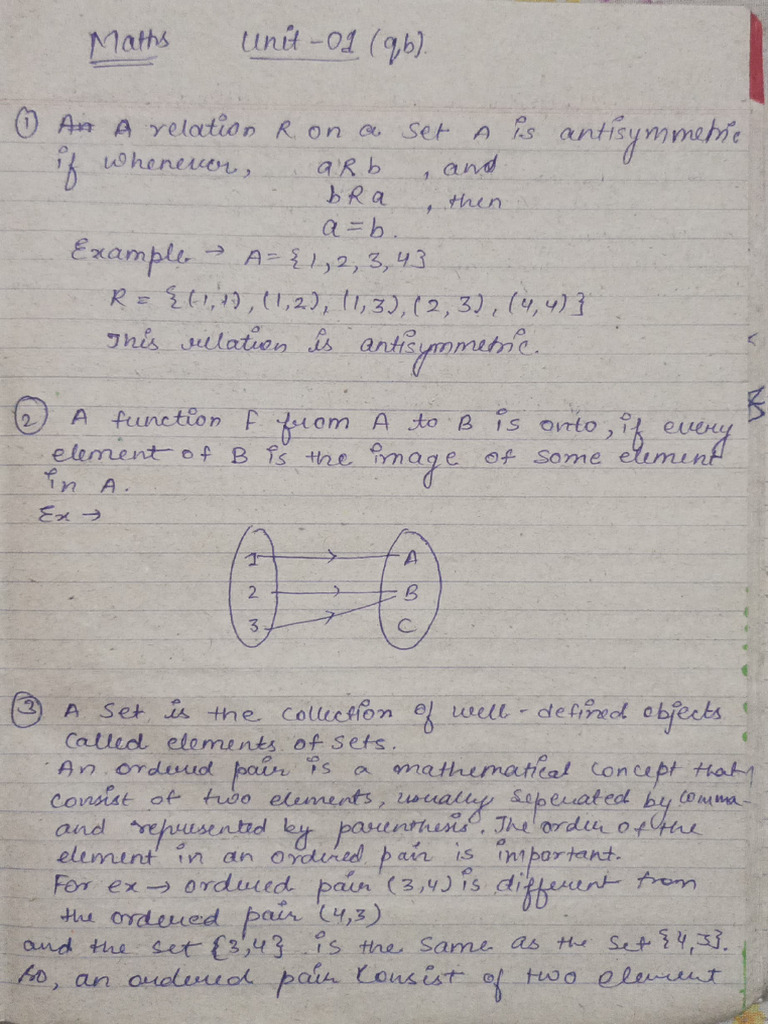 Maths Unit-01 (qb).
① A relation R on a set A is antisymmetric
if whenever, aRb , and
bRa , then
a=b.
Example → A={1,2,3,4}
R = {(1,1), (1,2), (1,3), (2,3), (4,4)}
This relation is antisymmetric.
② A function F from A to B is onto, if every
element of B is the image of some element
in A.
Ex →
1 A
2 B
3 C
③ A set is the collection of well-defined objects
called elements of sets.
An ordered pair is a mathematical concept that
consist of two elements, usually seperated by comma
and represented by parenthesis. The order of the
element in an ordered pair is important.
For ex → ordered pair (3,4) is different from
the ordered pair (4,3)
and the set {3,4} is the same as the set {4,3}.
so, an ordered pair consist of two element